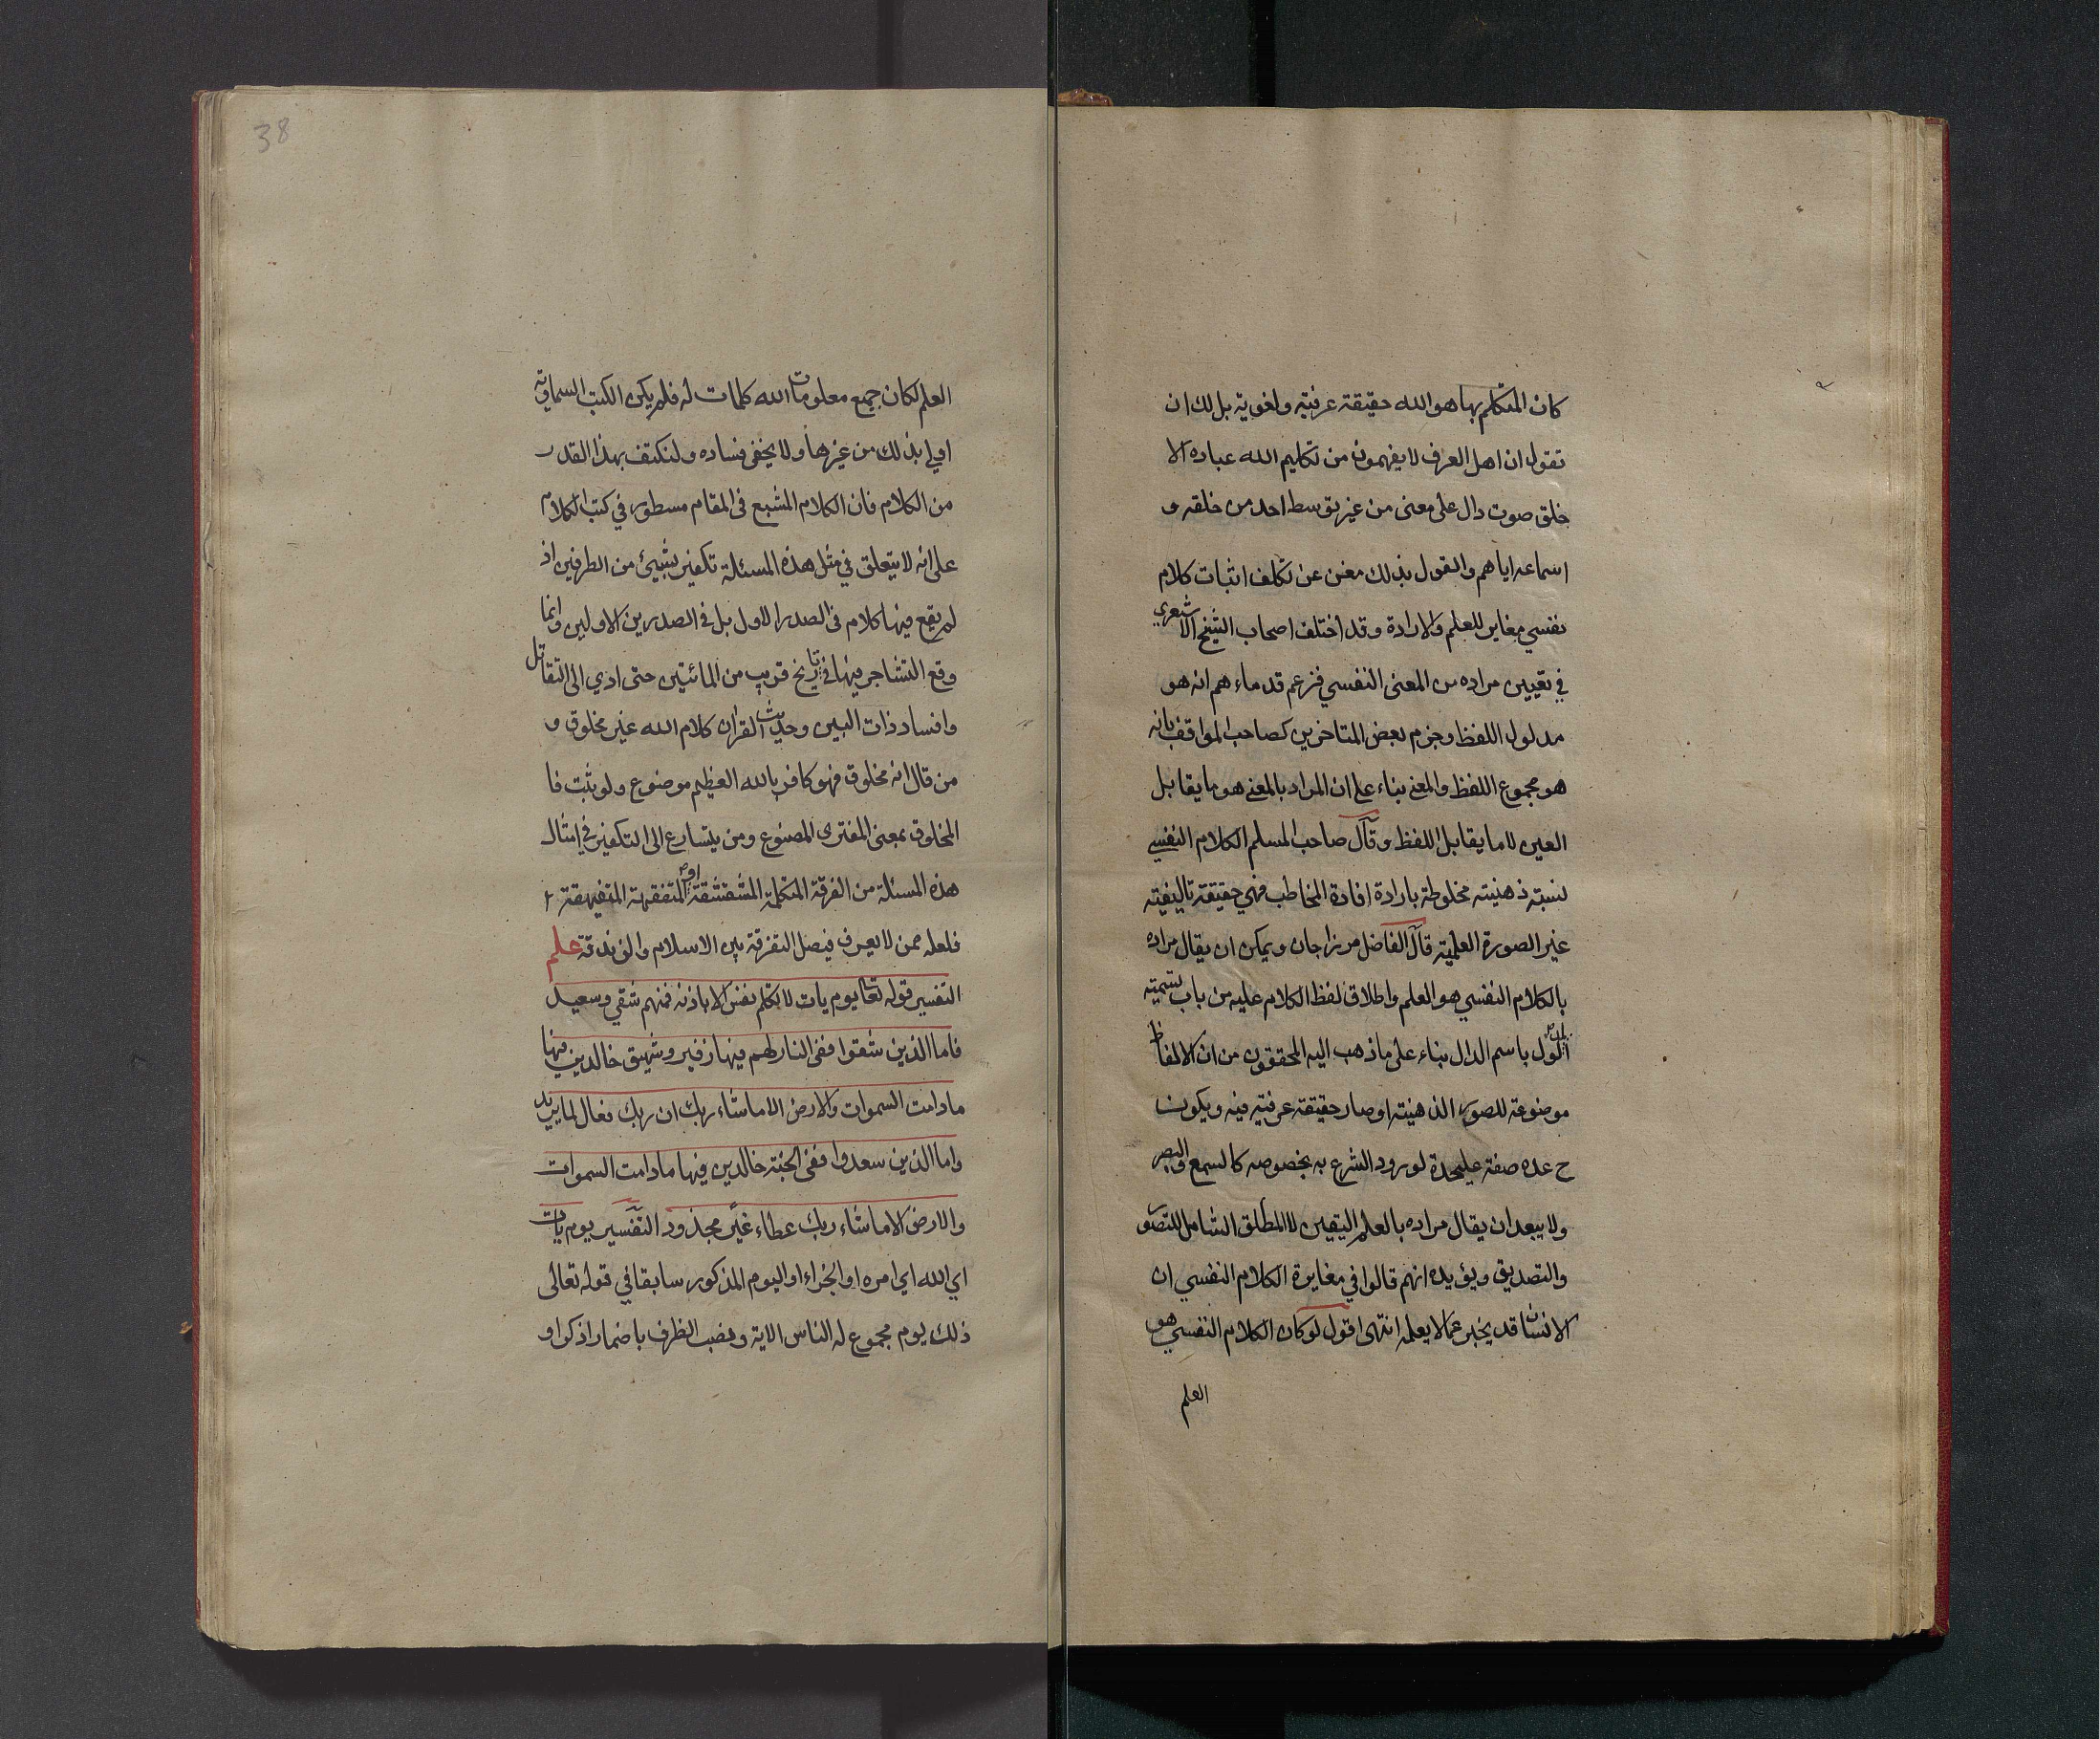 كان المتكلم بها هو الله حقيقة عرفية ولغوية بل لك ان
تقول ان اهل العرف لا يفهمون من تكليم الله عباده الا
خلق صوت دال على معنى من غير توسط احد من خلقه و
اسماعه اياهم والقول بذلك مغن عن تكلف اثبات كلام
نفسي مغاير للعلم والارادة وقد اختلف اصحاب الشيخ الاشعري
في تعيين مراده من المعنى النفسي فزعم قدماءهم انه هو
مدلول اللفظ وجزم بعض المتاخرين كصاحب المواقف بانه
هو مجموع اللفظ والمعنى بناء على ان المراد بالمعنى هو ما يقابل
العين لا ما يقابل اللفظ وقال صاحب المسلم الكلام النفسي
نسبة ذهنية مخلوطة بارادة افادة المخاطب فهي حقيقة تاليفية
غير الصورة العلمية قال الفاضل مرزا جان ويمكن ان يقال مراده
بالكلام النفسي هو العلم واطلاق لفظ الكلام عليه من باب تسمية
المدلول باسم الدال بناء على ما ذهب اليه المحققون من ان الالفاظ
موضوعة للصور الذهنية او صار حقيقة عرفية فيه ويكون
ح عده صفة عليحدة لورود الشرع به بخصوصه كالسمع والبصر
ولا يبعد ان يقال مراده بالعلم اليقين لا المطلق الشامل للتصور
والتصديق ويؤيده انهم قالوا في مغايرة الكلام النفسي ان
الانسان قد يخبر عما لا يعلمه انتهى اقول لو كان الكلام النفسي هو
العلم
38
العلم لكان جميع معلومات الله كلمات له فلم يكن الكتب السماوية
اولى بذلك من غيرها ولا يخفى فساده ولنكتف بهذا القدر
من الكلام فان الكلام المشبع في المقام مسطور في كتب الكلام
على انه لا يتعلق في مثل هذه المسئلة تكفير بشيئ من الطرفين اذ
لم يقع فيها كلام في الصدر الاول بل في الصدرين الاولين وانما
وقع التشاجر فيها في تاريخ قريب من المائتين حتى ادي الى التقاتل
وافساد ذات البين وحديث القران كلام الله غير مخلوق و
من قال انه مخلوق فهو كافر بالله العظيم موضوع ولو ثبت فا
المخلوق بمعنى المفترى المصنوع ومن يتسارع الى التكفير في امثال
هذه المسئلة من الفرقة المتكلمة المتشقشقة او المتفقهة المتفيهقة
فلعله ممن لا يعرف فيصل التفرقة بين الاسلام والزندقة علم
التفسير قوله تعالى يوم يات لا تكلم نفس الا باذنه فمنهم شقي وسعيد
فاما الذين شقوا ففي النار لهم فيها زفير وشهيق خالدين فيها
مادامت السموات والارض الا ماشاء ربك ان ربك فعال لما يريد
واما الذين سعدوا ففي الجنة خالدين فيها مادامت السموات
والارض الا ماشاء ربك عطاء غير مجذوذ التفسير يوم يات
اي الله اي امره او الجزاء او اليوم المذكور سابقا في قوله تعالى
ذلك يوم مجموع له الناس الاية ونصب الظرف باضمار اذكر او